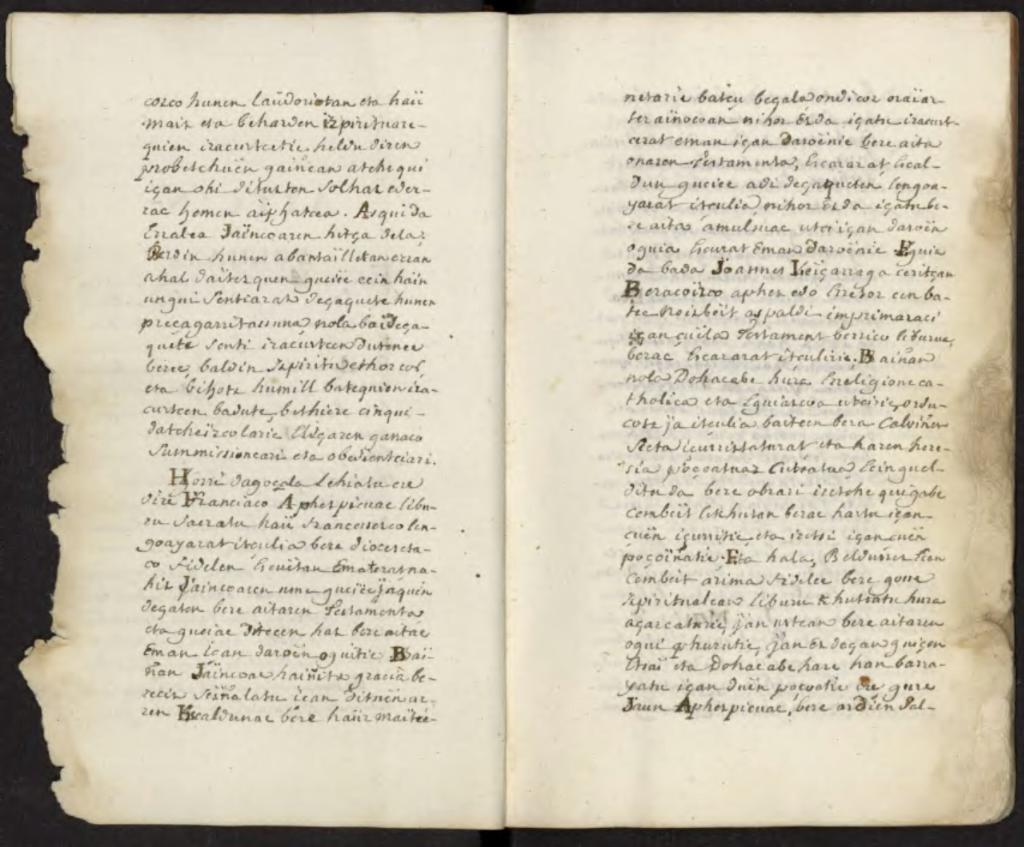 corco hunen laudoriotan eta haü
maiz eta beharden izpirituare-
quien iracurtcetic heldu diren
probetchuën gaiñean atchequi
içan ohi dituzten solhaz eder-
rac hemen aiphatcea. Asqui da
Erratea Jaincoaren hitça dela;
Berdin hunen abantailletan erran
ahal daitezquen guciec ecin hain
ungui sentiaraz deçaqueте hunen
precagarritasuna nola bai deça-
quete senti iracurtcen dutenec
berec, baldin izpiritu ethorcor,
eta bihotz humill batequien ira-
curtcen badute, bethiere cinqui-
datcheïzcolaric Eliçaren ganaco
Summissioneari eta obedientciari.
Horri dagocola Lehiatu cre
dire Franciaco Aphezpicuac libu-
ru sacratu haü francesezco len-
goayarat itculia bere dioceseta-
co fidelen escuetan Ematerat na-
hiz Jaincoaren ume guciec jaquin
deçaten bere aitaren Testamenta
eta guciac ditecen haz bere aitac
Eman içan daroën oguitic. Bai-
ñan Jaincoac hainitz gracia be-
reciz señalatu içan dituën ar-
ren Escaldunac bere haur maiteë-
netaric batçu beçala ondicoz oraiar-
terainocoan nihor ez da içatu iracurt-
cerat eman içan daroënic bere aita
onaren Testamenta, Escararat Escal-
dun guciec adi deçaqueten lengoa-
yarat itculia nihor ez da içatu be-
re aita amulsuac utci içan daroën
oguia Escurat Eman daroënic. Eguia
da bada Joannes Leiçarraga ceritçan
Beracoizco aphez edo Erretor cen ba-
tec noizbeit aspaldi imprimaraci
içan çuïla Testament berrico liburua,
berac Escararat itculiric. Bainan
nola Dohacabe hura Erreligione ca-
tholica eta Eguiazcoa utciric, ordu-
cotz ja itculia baitcen bera Calvinen
Secta icurristaturat eta haren here-
sia poçoatuaz cutsatua, Ecin quel-
ditu da bere obrari icetche qui gabe
cembeit lekhutan berac hartu içan
cuën içurritic eta icetsi içan cuën
poçoinatic. Eta hala, Beldurrez Ecen
cembeit arima fidelec bere gose
izpiritualean liburu khutsatu hura
açarcaturic, jan ustean bere aitaren
ogui phuruтic, jan Ez deçan guiçon
Etsai eta Dohacabe harc han barra-
yatu içan duën poçoatic ere gure
Jaun Aphezpicuac, bere ardien sal-